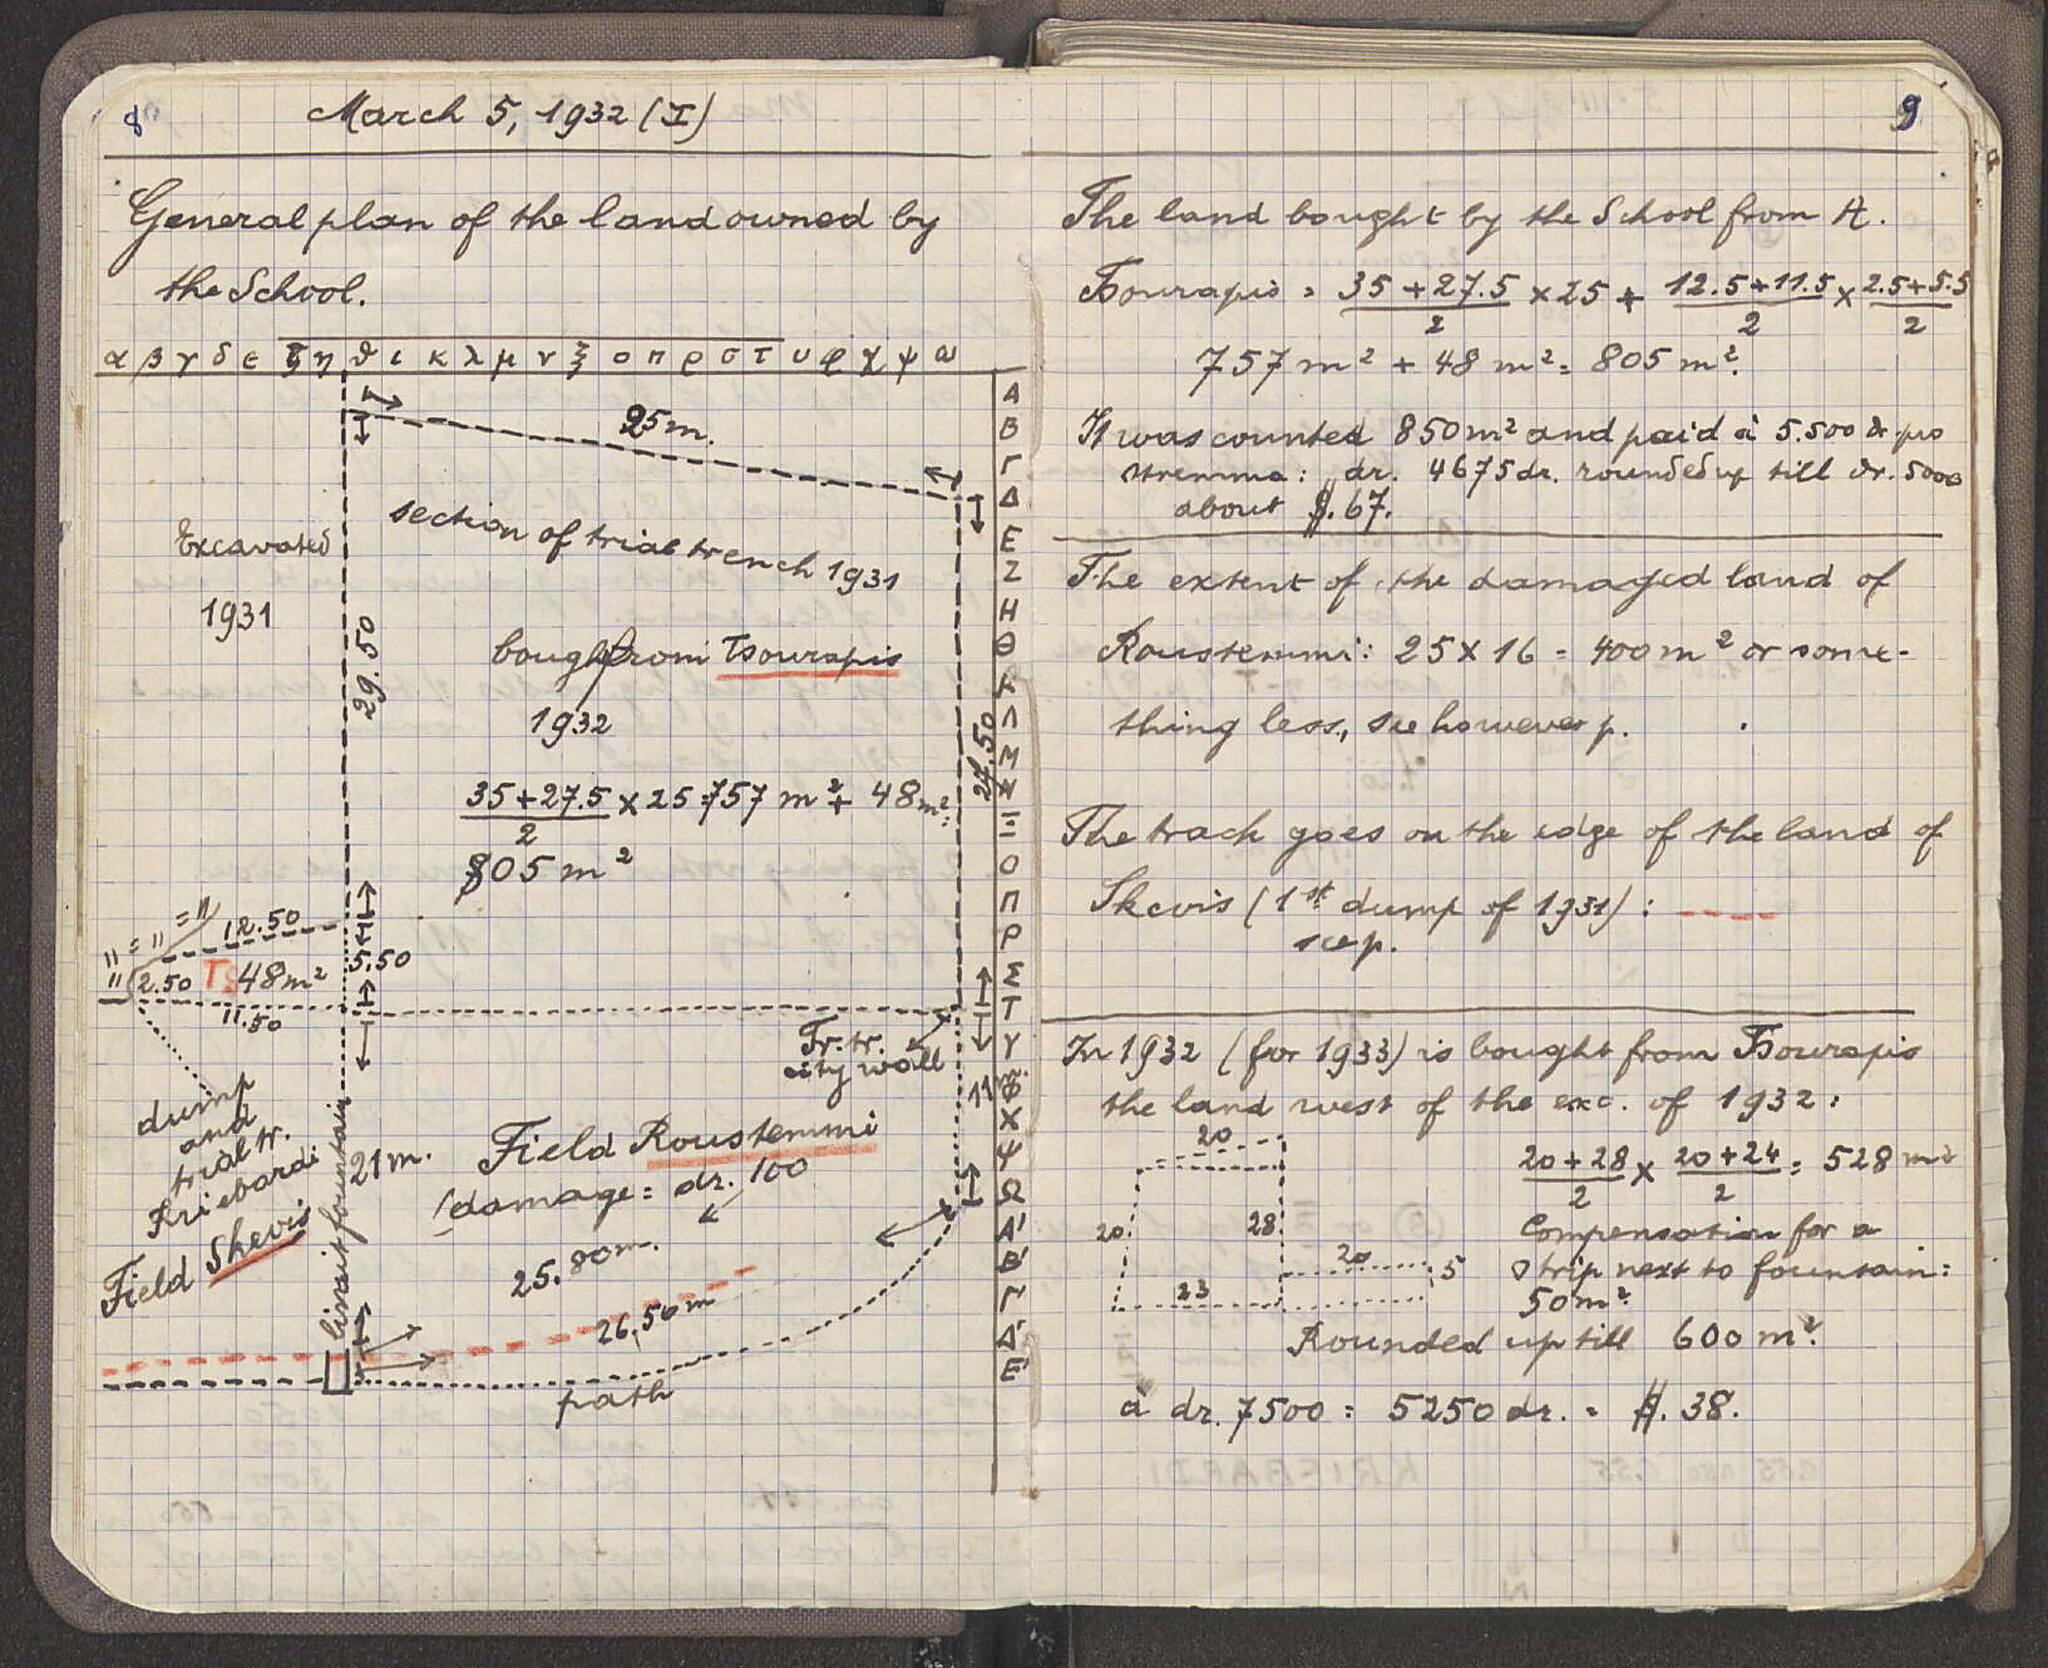 8
March 5, 1932 (I)
General plan of the land owned by
the School.
α β γ δ ε ζ η θ ι κ λ μ ν ξ ο π ρ σ τ υ φ χ ψ ω
25m.
section of trial trench 1931
Excavated
1931
29.50
bought from Tsourapis
1932
35+27.5/2 × 25 = 757 m² + 48 m² =
805 m²
Α
Β
Γ
Δ
Ε
Ζ
Η
Θ
Κ
Λ
Μ
Ν
Ξ
Ο
Π
Ρ
Σ
Τ
Υ
Φ
Χ
Ψ
Ω
Α'
Β'
Γ'
Δ'
Ε'
12.50
" = " = "
" 2.50 Ts 48 m²
5.50
11.50
Tr. tr.
city wall
11 m.
dump
and
trial tr.
Kriebardi
Field Skevis
limit fountain
21 m.
Field Roustemmi
(damage = dr. 100
25.80 m.
26.50 m
path
9
The land bought by the School from A.
Tsourapis = 35+27.5/2 × 25 + 12.5+11.5/2 × 2.5+5.5/2
757 m² + 48 m² = 805 m².
It was counted 850 m² and paid à 5.500 dr pro
stremma: dr. 4675 dr. rounded up till dr. 5000
about $. 67.
The extent of the damaged land of
Roustemmi: 25 × 16 = 400 m² or some-
thing less, see however p. .
The track goes on the edge of the land of
Skevis (1st dump of 1931) : ----
see p.
In 1932 (for 1933) is bought from Tsourapis
the land west of the exc. of 1932:
20
20+28/2 × 20+24/2 = 528 m²
20
28
23
20
5
Compensation for a
strip next to fountain:
50 m².
Rounded up till 600 m².
à dr. 7500 = 5250 dr. = $. 38.